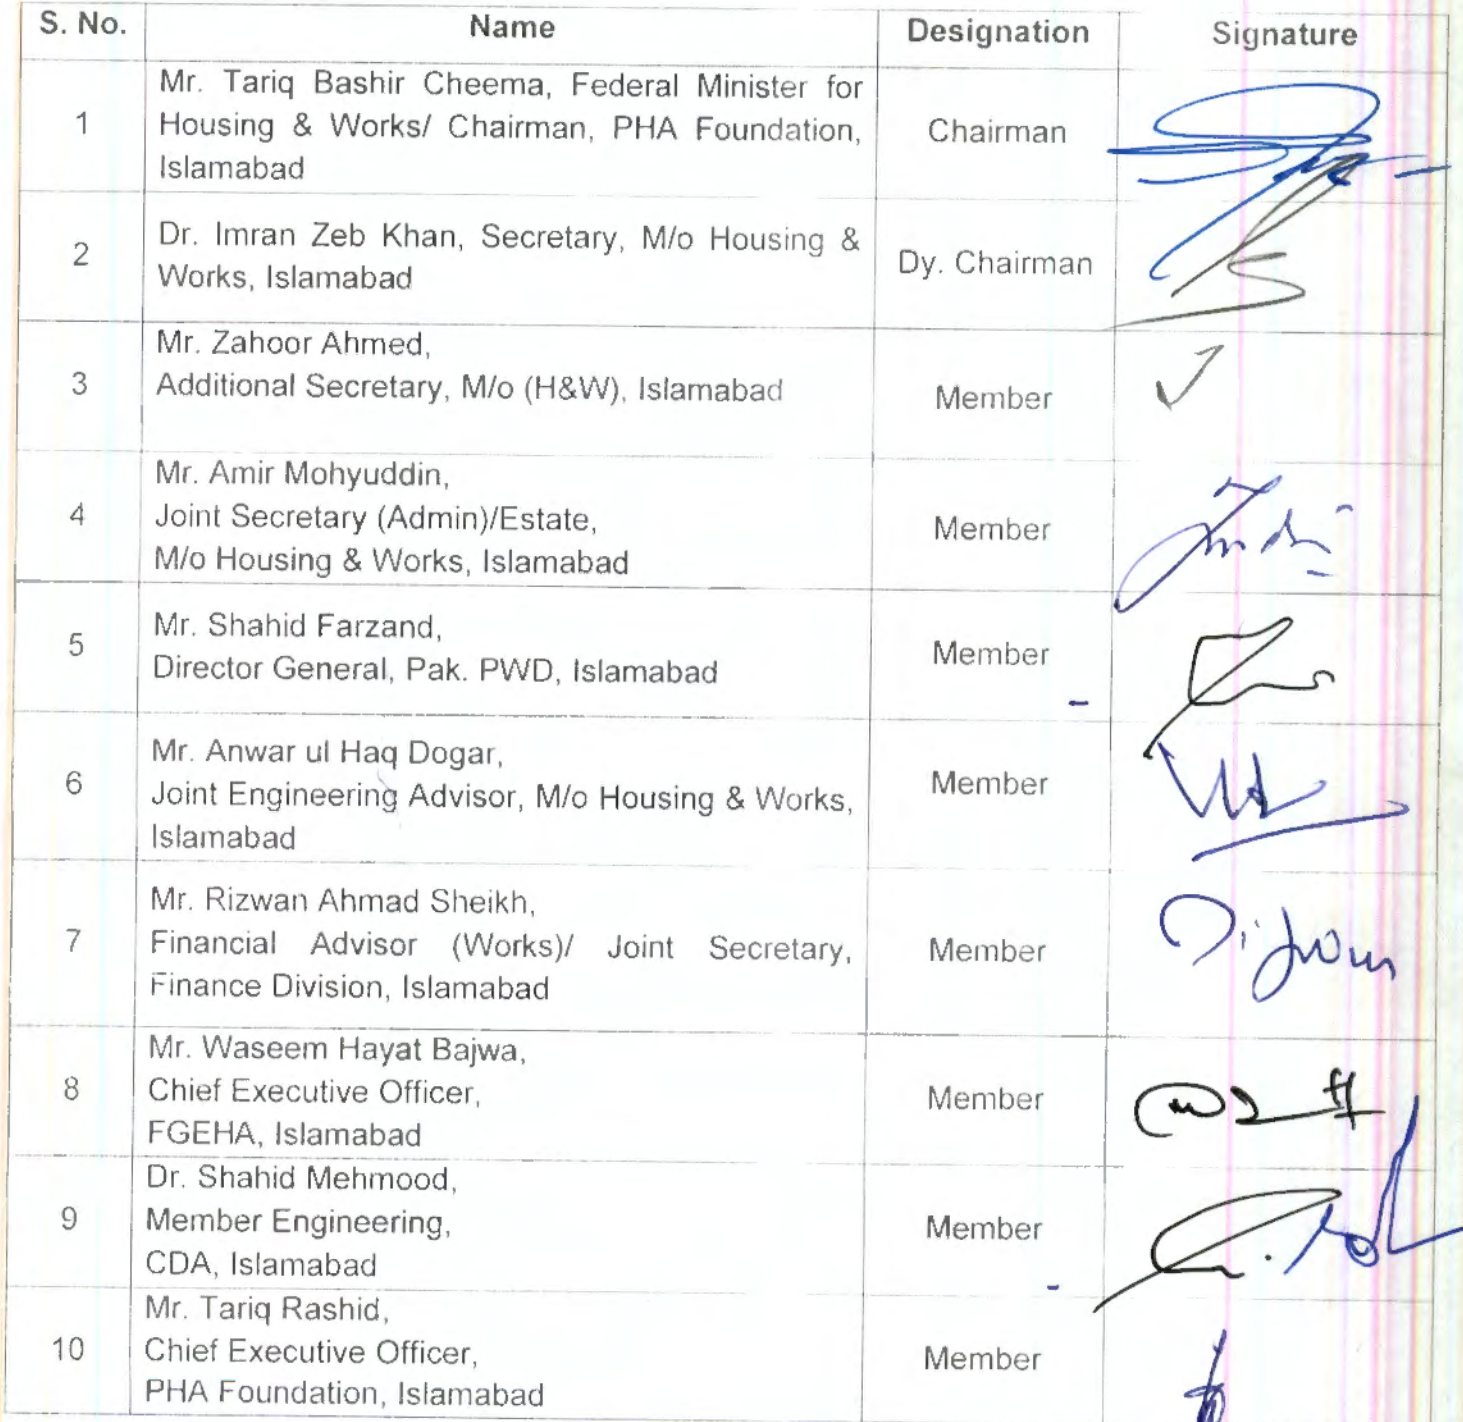 S. No. Name Designation Signature
1 Mr. Tariq Bashir Cheema, Federal Minister for
Housing & Works/ Chairman, PHA Foundation,
Islamabad
Chairman
2 Dr. Imran Zeb Khan, Secretary, M/o Housing &
Works, Islamabad
Dy. Chairman
3 Mr. Zahoor Ahmed,
Additional Secretary, M/o (H&W), Islamabad
Member
4 Mr. Amir Mohyuddin,
Joint Secretary (Admin)/Estate,
M/o Housing & Works, Islamabad
Member
5 Mr. Shahid Farzand,
Director General, Pak. PWD, Islamabad
Member
6 Mr. Anwar ul Haq Dogar,
Joint Engineering Advisor, M/o Housing & Works,
Islamabad
Member
7 Mr. Rizwan Ahmad Sheikh,
Financial Advisor (Works)/ Joint Secretary,
Finance Division, Islamabad
Member
8 Mr. Waseem Hayat Bajwa,
Chief Executive Officer,
FGEHA, Islamabad
Member
9 Dr. Shahid Mehmood,
Member Engineering,
CDA, Islamabad
Member
10 Mr. Tariq Rashid,
Chief Executive Officer,
PHA Foundation, Islamabad
Member